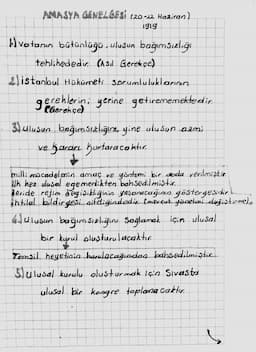 AMASYA GENELGESİ (20-22 Haziran)
1919
1) Vatanın bütünlüğü, ulusun bağımsızlığı
tehlikededir. (Asıl Gerekçe)
2) İstanbul Hükümeti sorumluluklarının
gereklerini yerine getirememektedir.
(Gerekçe)
3) Ulusun bağımsızlığını yine ulusun azmi
ve kararı kurtaracaktır.
Milli mücadelenin amaç ve yöntemi bir arada verilmiştir.
İlk kez ulusal egemenlikten bahsedilmiştir.
İleride rejim değişikliğinin yaşanacağının göstergesidir.
İhtilal bildirgesi niteliğindedir (mevcut yönetimi değiştirmek)
4) Ulusun bağımsızlığını sağlamak için ulusal
bir kurul oluşturulacaktır.
Temsil heyetinin kurulacağından bahsedilmiştir.
5) Ulusal kurulu oluşturmak için Sivasta
ulusal bir kongre toplanacaktır.